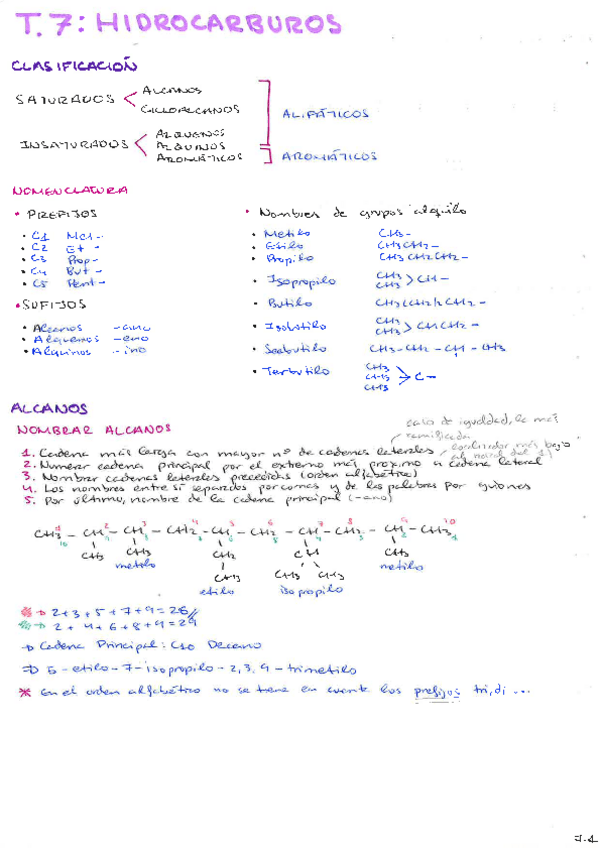 T.7: HIDROCARBUROS
CLASIFICACIÓN
SATURADOS < ALCANOS
CICLOALCANOS
ALIFÁTICOS
INSATURADOS < ALQUENOS
ALQUINOS
AROMÁTICOS
AROMÁTICOS
NOMENCLATURA
• PREFIJOS
• C1 Met-
• C2 Et-
• C3 Prop-
• C4 But-
• C5 Pent-
• SUFIJOS
• Alcanos -ano
• Alquenos -eno
• Alquinos -ino
• Nombres de grupos alquilo
• Metilo CH3-
• Etilo CH3CH2-
• Propilo CH3CH2CH2-
• Isopropilo CH3 CH3 > CH-
• Butilo CH3(CH2)2CH2-
• Isobutilo CH3 CH3 > CHCH2-
• Secbutilo CH3-CH2-CH-CH3
• Terbutilo CH3 CH3 CH3 > C-
ALCANOS
NOMBRAR ALCANOS
caso de igualdad, la más
ramificada
1. Cadena más larga con mayor nº de cadenas laterales
localizador más bajo
2. Numerar cadena principal por el extremo más proximo a cadena lateral
3. Nombrar cadenas laterales precedidas (orden alfabético)
4. Los nombres entre sí separados por comas y de las palabras por guiones
5. Por último, nombre de la cadena principal (-ano)
1 2 3 4 5 6 7 8 9 10
CH3-CH-CH-CH2-CH-CH2-CH-CH2-CH-CH3
CH3 CH3 CH2 CH CH3
metilo CH3 CH3 CH3 metilo
etilo isopropilo
2+3+5+7+9=26
2+4+6+8+9=29
→ Cadena Principal: C10 Decano
⇒ 5-etilo-7-isopropilo-2,3,9-trimetilo
* En el orden alfabético no se tiene en cuenta los prefijos tri, di ...
7.1